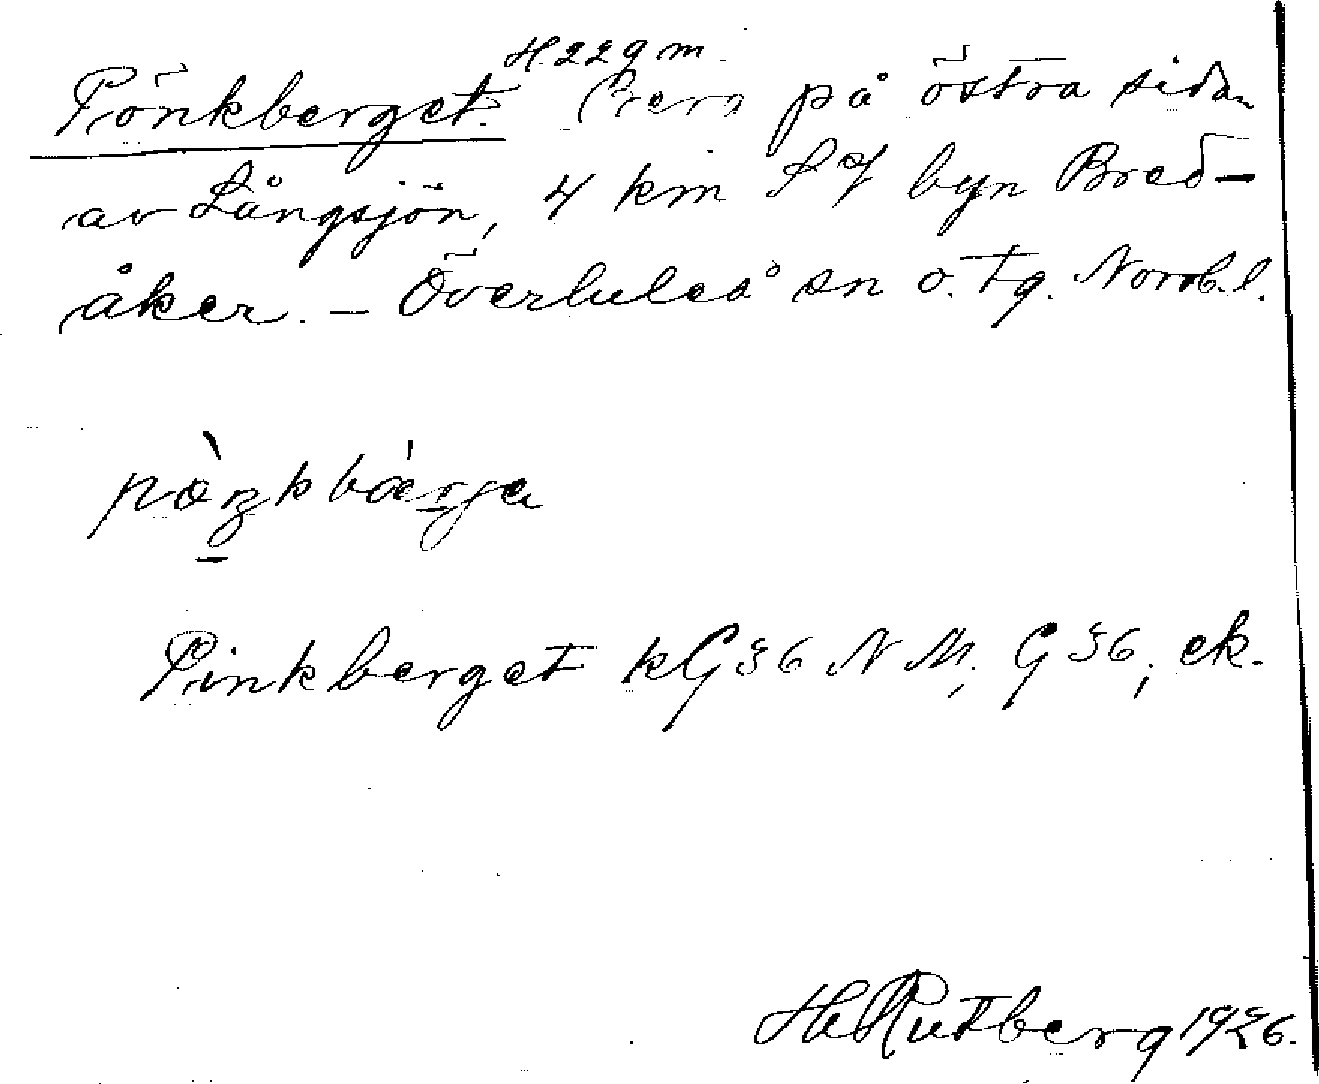 H. 229 m.
Pönkberget. Berg på östra sidan
av Långsjön, 4 km SV byn Bred-
åker. – Överluleå sn o. tg. Norrb. l.
Pinkberget kG36 NM, G36, ek.
H. Rutberg 1926.